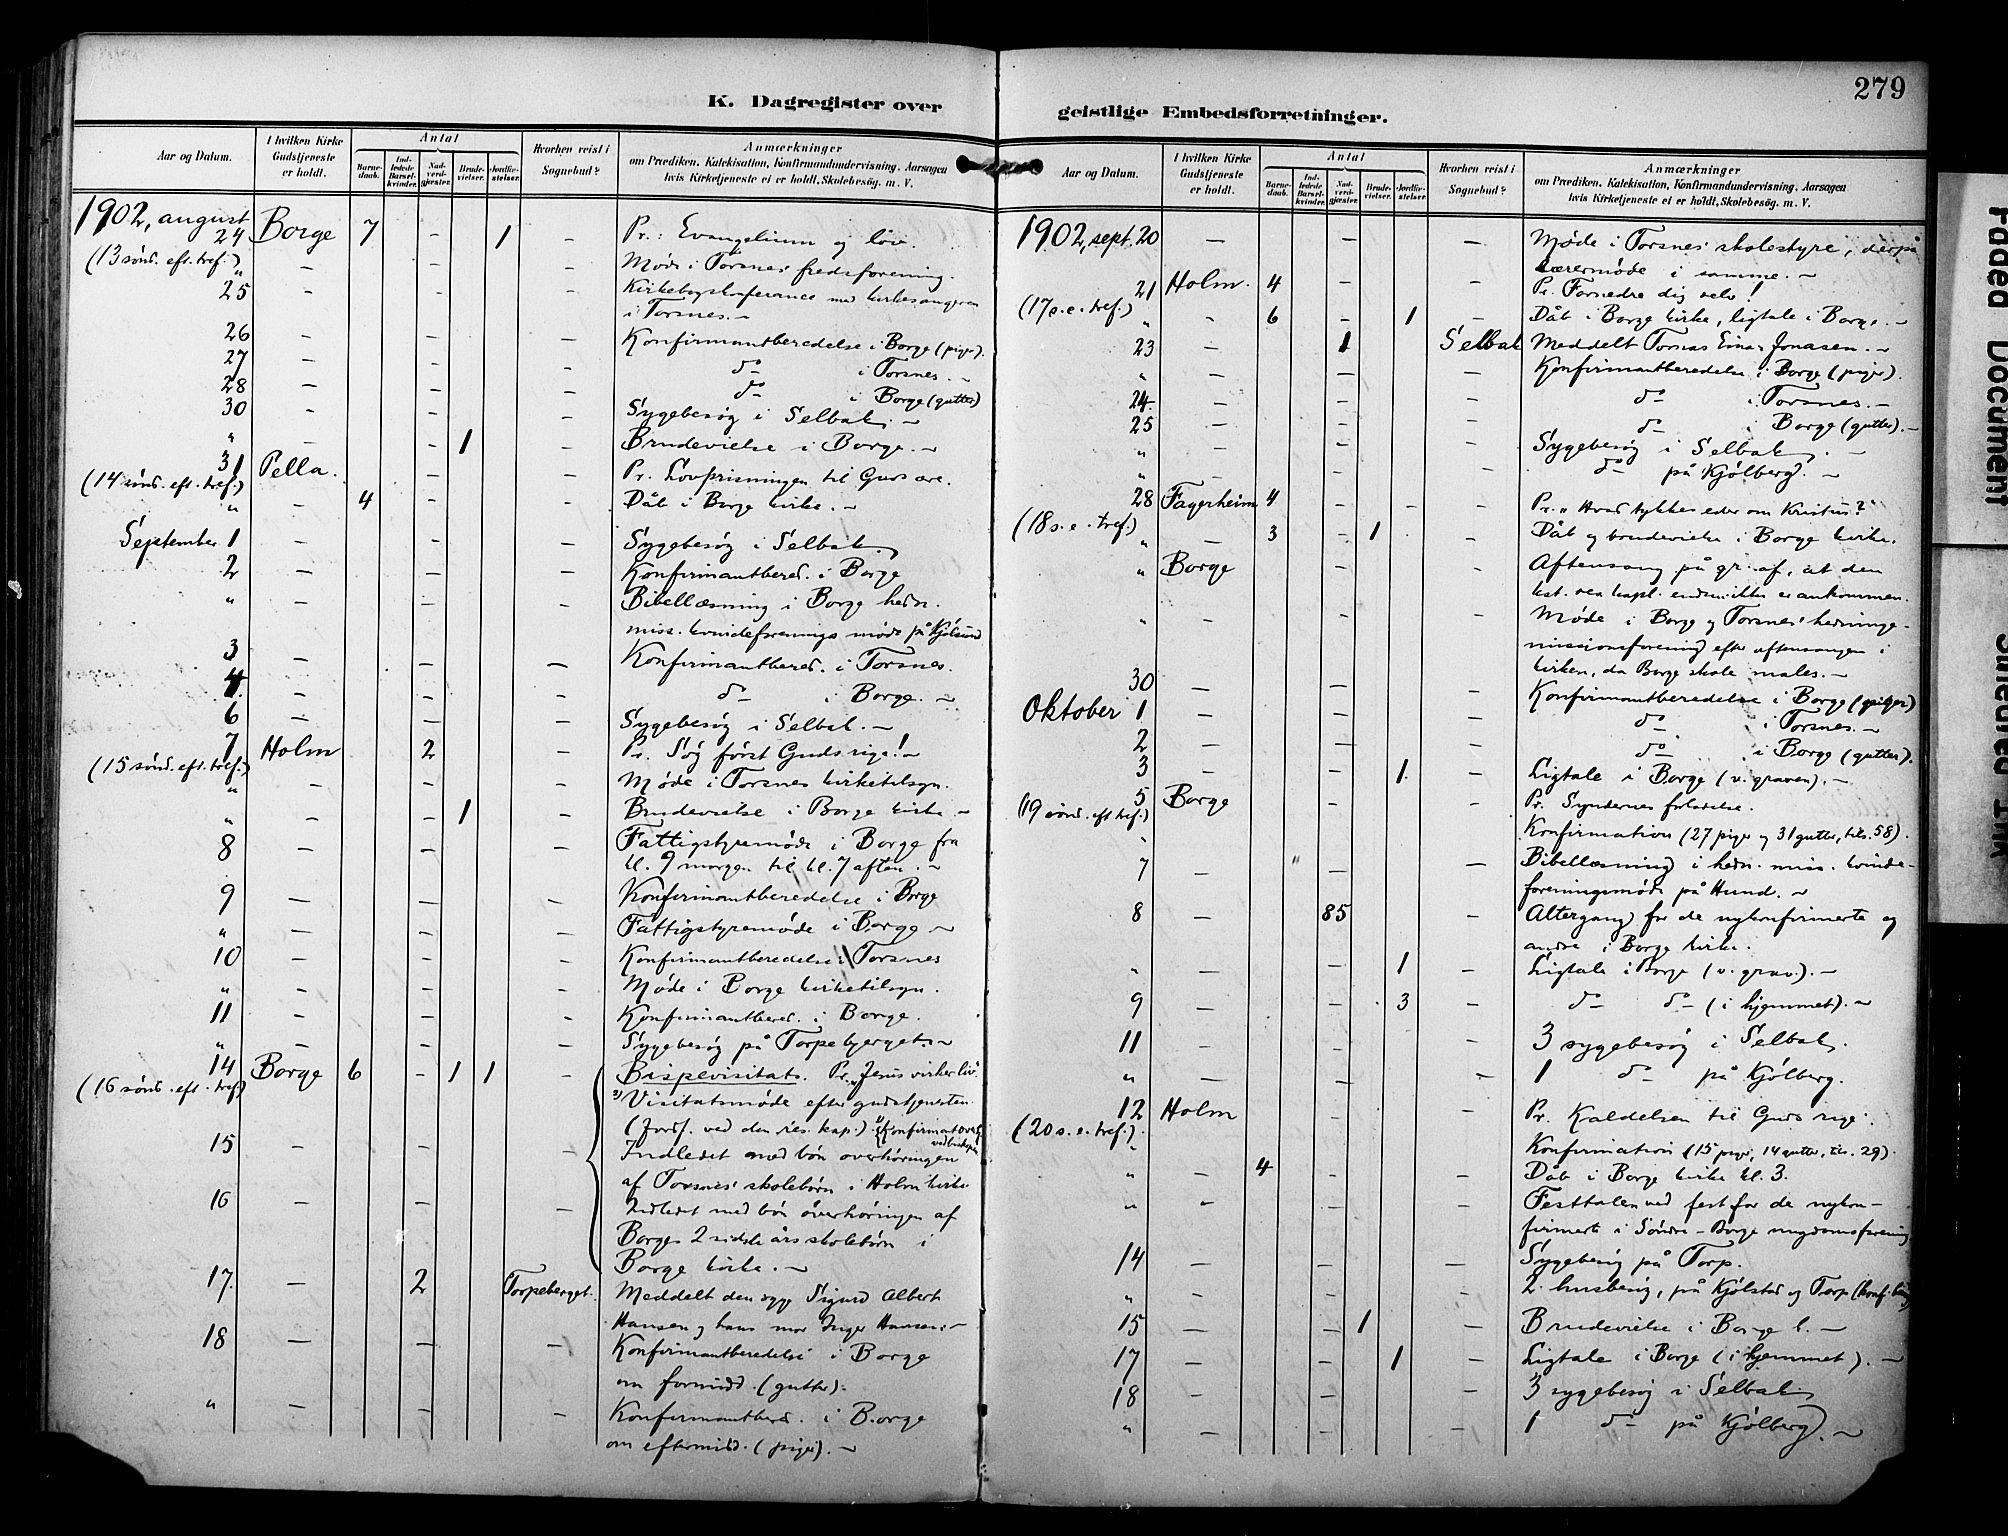 279
K. Dagregister over
Aar og Datum.
I hvilken Kirke Gudstjeneste er holdt.
Antal
Barnedaab.
Indledede Barselkvinder.
Nadverdgjester.
Brudevielser.
Jordfæstelser.
Hvorhen reist i Sognebud?
Anmærkninger
om Prædiken. Katekisation, Konfirmandundervisning, Aarsagen
hvis Kirketjeneste ei er holdt, Skolebesøg. m. V.
1902, august
24 Borge 7 - 1 - Pr.: Evangelium og lov.
(13 sønd. eft. tref.) " - - - Møde i Torsnes fredsforening.
25 - - - Kirkebogskonference med kirkesangeren
i Torsnes. -
26 - - - Konfirmantberedelse i Borge (piger).
27 - - - do i Torsnes. -
28 - - - do i Borge (gutter)
30 - - - Sygebesøg i Selbak. -
" - - 1 - Brudevielse i Borge. -
31 Pella. - - Pr. Lovprisningen til Guds ære.
(14 sønd. eft. tref.)
" - 4 - - Dåb i Borge kirke. -
September 1 - - - Sygebesøg i Selbak.
2 - - - Konfirmantbered. i Borge
" - - - Bibellæsning i Borge hedn.
miss. kvindeforenings møde på Kjølsund
3 - - - Konfirmantbered. i Torsnes.
4 - - - do i Borge. -
6 - - - Sygebesøg i Selbak. -
7 Holm 2 - Pr. Søg først Guds rige! -
(15 sønd. eft. tref.)
" - - - Møde i Torsnes kirketilsyn.
" - - 1 - Brudevielse i Borge kirke -
8 - - - Fattigstyremøde i Borge fra
kl. 9 morgen til kl. 7 aften. -
9 - - - Konfirmantberedelse i Borge
" - - - Fattigstyremøde i Borge -
10 - - - Konfirmantberedelse i Torsnes
" - - - Møde i Borge kirketilsyn.
11 - - - Konfirmantbered. i Borge.
" - - - Sygebesøg på Torpebjerget. -
14 Borge 6 - 1 1 - Bispevisitats. Pr. „Jesus virker liv".
(16 sønd. eft. tref)
2) Visitatsmøde efter gudstjenesten.
(Jordf. ved den res. kap.)
15 - - - Indledet med bøn overhøringen
af Torsnes' skolebørn i Holm kirke
16 - - - Indledet med bøn overhøringen af
Borges 2 sidste års skolebørn i
Borge kirke. -
17. - 2 Torpeberget. Meddelt den syge Sigurd Albert
Hansen og hans mor Inger Hansen: -
18 - - - Konfirmantberedelse i Borge
om formidd. (gutter).
" - - - Konfirmantbered. i Borge
om eftermidd. (piger). -
geistlige Embedsforretninger.
Aar og Datum.
I hvilken Kirke Gudstjeneste er holdt.
Antal
Barnedaab.
Indledede Barselkvinder.
Nadverdgjester.
Brudevielser.
Jordfæstelser.
Hvorhen reist i Sognebud?
Anmærkninger
om Prædiken. Katekisation, Konfirmandundervisning, Aarsagen
hvis Kirketjeneste ei er holdt, Skolebesøg. m. V.
1902, sept. 20 - - - Møde i Torsnes' skolestyre, derpå
lærermøde i samme. -
21 Holm. 4 - - Pr. Fornedre dig selv!
(17 s. e. tref.)
" - 6 - 1 - Dåb i Borge kirke, ligtale i Borge. -
23 - 1 Selbak Meddelt Tomas Einar Jonasen. -
" - - - Konfirmantberedelse i Borge (piger).
24 - - - do i Torsnes. -
25 - - - do i Borge (gutter). -
" - - - Sygebesøg i Selbak. -
" - - - do på Kjølberg. -
28 Fagerheim 4 - - - Pr. „Hvad tykkes eder om Kristus?"
(18 s. e. tref.)
" - 3 - 1 - Dåb og brudevielse i Borge kirke.
" Borge - - Aftensang på gr. af, at den
kst. res. kapl. endnu ikke er ankommen.
" - - - Møde i Borge og Torsnes' hedninge-
missionsforening efter aftensangen i
kirken, da Borge skole males. -
30 - - - Konfirmantberedelse i Borge (piger)
Oktober 1 - - - do i Torsnes. -
2 - - - do i Borge (gutter).
3 - - 1. - Ligtale i Borge (v. graven). -
5 Borge - - Pr. Syndernes forladelse.
(19 sønd. eft tref.)
" - Konfirmation (27 piger og 31 gutter, tils. 58).
7 - - - Bibellæsning i hedn. miss. kvinde-
foreningsmøde på Hund. -
8 - 85 - Altergang for de nykonfirmerte og
andre i Borge kirke.
" - - 1 - Ligtale i Borge (v. grav.). -
9 - - 3 - do do (i hjemmet). -
11 - - - 3 sygebesøg i Selbak.
" - - - 1 do på Kjølberg.
12 Holm - - Pr. Kaldelsen til Guds rige.
(20 s. e. tref.)
" - Konfirmation (15 piger, 14 gutter, tils. 29).
" - 4 - - Dåb i Borge kirke kl. 3.
" - - - Festtalen ved fest for de nykon-
firmerte i Søndre-Borge ungdomsforening
14 - - - Sygebesøg på Torp.
" - - - 2 husbesøg, på Kjølstad og Torp
15 - - 1 - Brudevielse i Borge k. -
17 - - 1 - Ligtale i Borge (i hjemmet). -
18 - - - 3 sygebesøg i Selbak
" - - - 1 do på Kjølberg. -
Faded Document
Smeared Ink